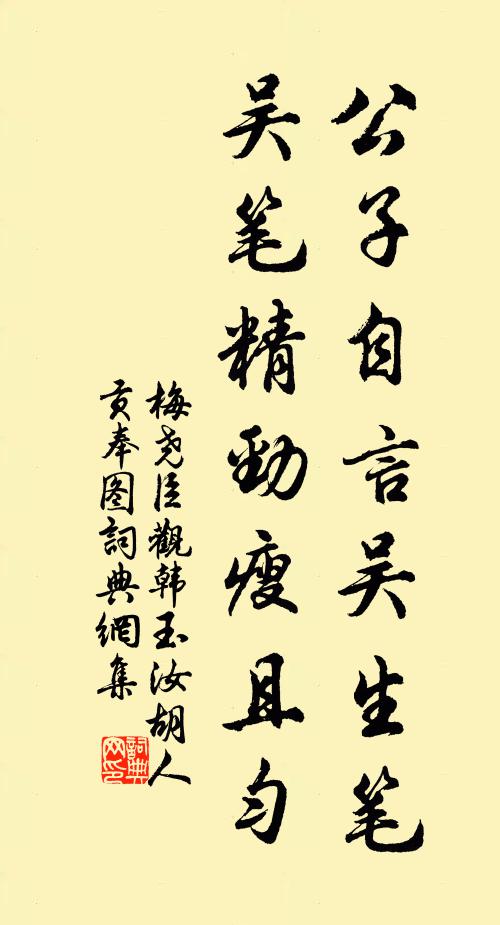 公子自言吴生笔
吴笔精劲瘦且匀
梅尧臣觀韩玉汝胡人
贡奉图詞典網集
詞典
网印